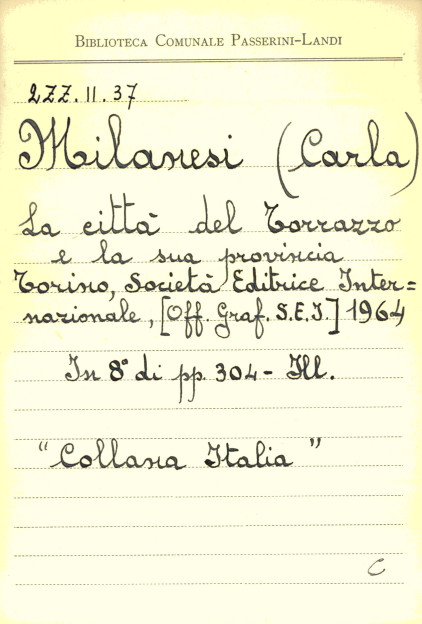 Biblioteca Comunale Passerini-Landi
2ZZ.II.37
Milanesi (Carla)
La città del Torrazzo
e la sua provincia
Torino, Società Editrice Inter=
nazionale, [Off. Graf. S.E.I.] 1964
In 8° di pp. 304 - Ill.
"Collana Italia"
C